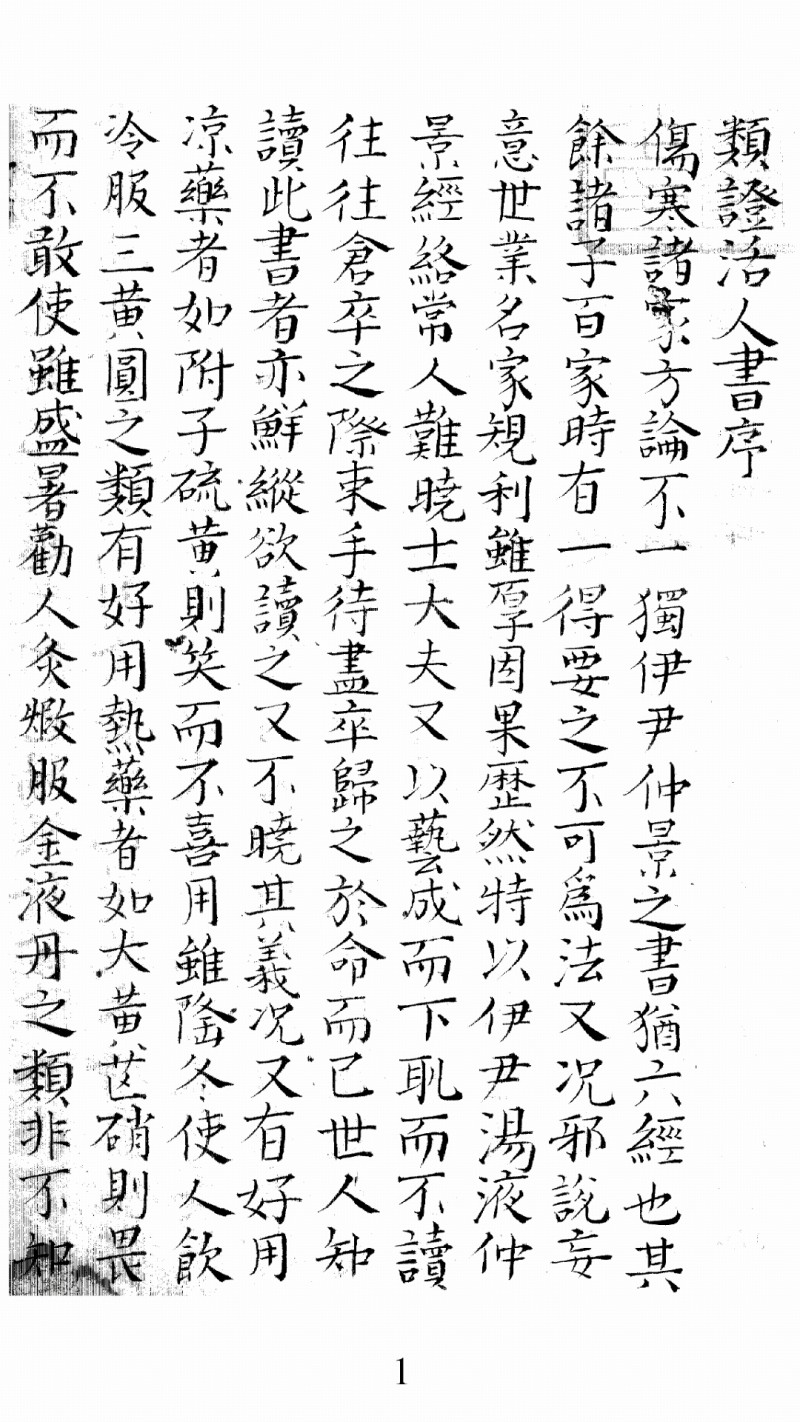 類證活人書序
傷寒諸家方論不一獨伊尹仲景之書猶六經也其
餘諸子百家時有一得要之不可爲法又况邪説妄
意世業名家規利雖厚因果歷然特以伊尹湯液仲
景經絡常人難曉士大夫又以藝成而下恥而不讀
往往倉卒之際束手待盡卒歸之於命而已世人知
讀此書者亦鮮縱欲讀之又不曉其義况又有好用
凉藥者如附子硫黄則笑而不喜用雖隆冬使人飮
冷服三黄圓之類有好用熱藥者如大黄芒硝則畏
而不敢使雖盛暑勸人灸煅服金液丹之類非不知
1